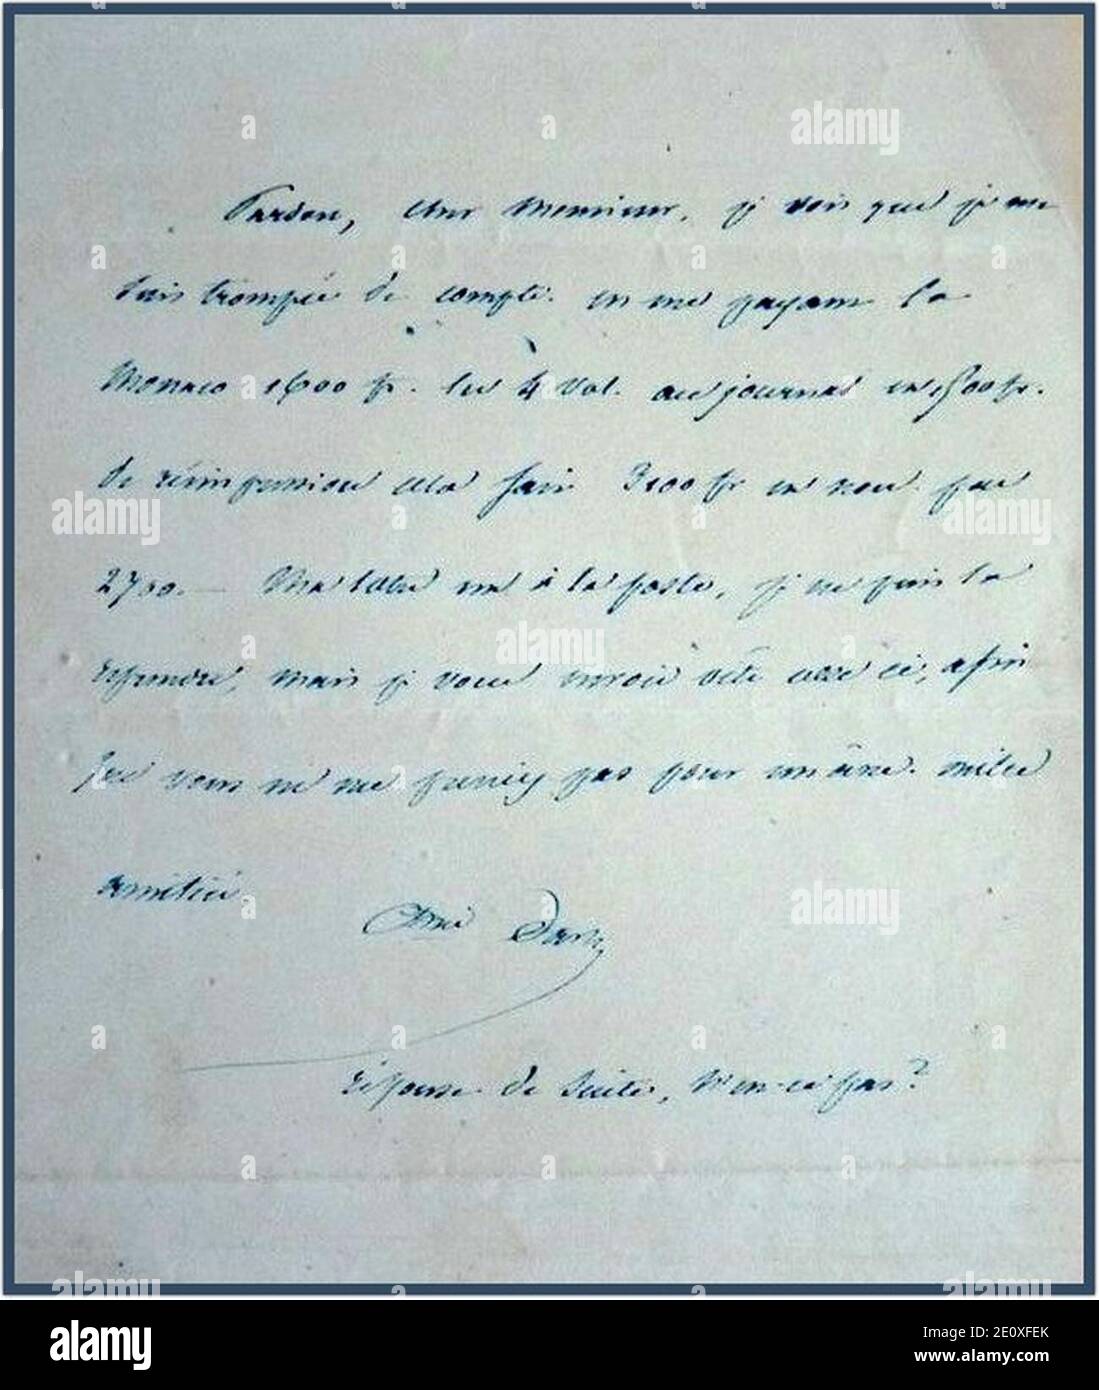 Pardon, cher Monsieur, je vois que je me
suis trompée de compte. en me payant la
Monaco 1600 fr. les 4 vol. au journal et 1500 fr.
de réimpression cela fait 3100 fr et non pas
2700. — Ma lettre est à la poste, je ne puis la
reprendre, mais je vous envoie vite celle ci, afin
que vous ne me preniez pas pour un âne. mille
amitiés
réponse de suite, n'est-ce pas?
alamy
Image ID: 2E0XFEK
www.alamy.com